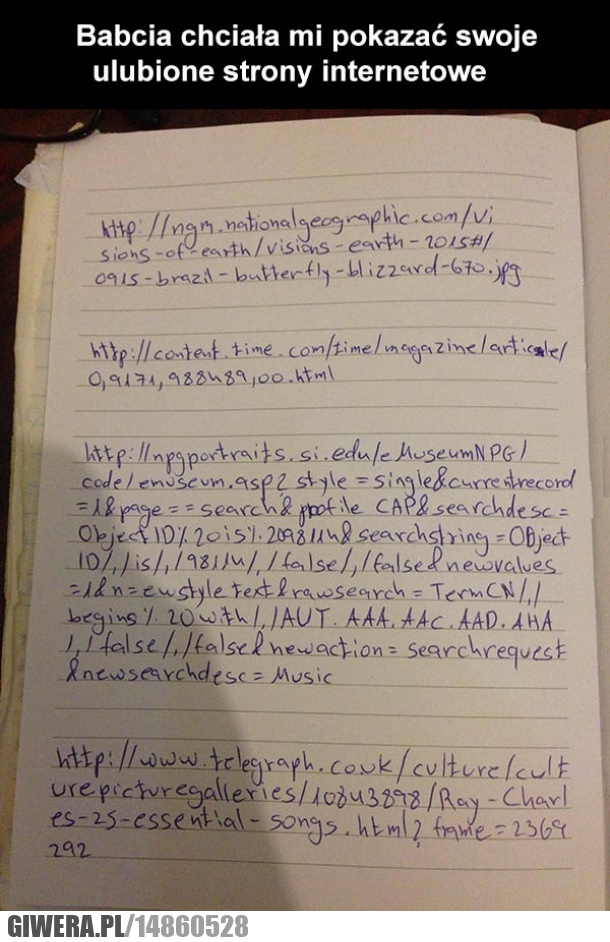 Babcia chciała mi pokazać swoje
ulubione strony internetowe
http://ngm.nationalgeographic.com/vi
sions-of-earth/visions-earth-2015#/
0915-brazil-butterfly-blizzard-670.jpg
http://content.time.com/time/magazine/article/
0,9171,988489,00.html
http://npgportraits.si.edu/eMuseumNPG/
code/emuseum.asp?style=single&currentrecord
=1&page==search&profile CAP&searchdesc=
Object ID%20is%2098114&searchstring=OBject
ID/,/is/,/98114/,/false/,/false&newvalues
=1&n=ewstyle text&rawsearch=TermCN/,/
begins%20with/,/AUT.AAA.AAC.AAD.AHA
/,/false/,/false&newaction=searchrequest
&newsearchdesc=Music
http://www.telegraph.co.uk/culture/cult
urepicturegalleries/10843898/Ray-Charl
es-25-essential-songs.html?frame=2369
292
GIWERA.PL/14860528